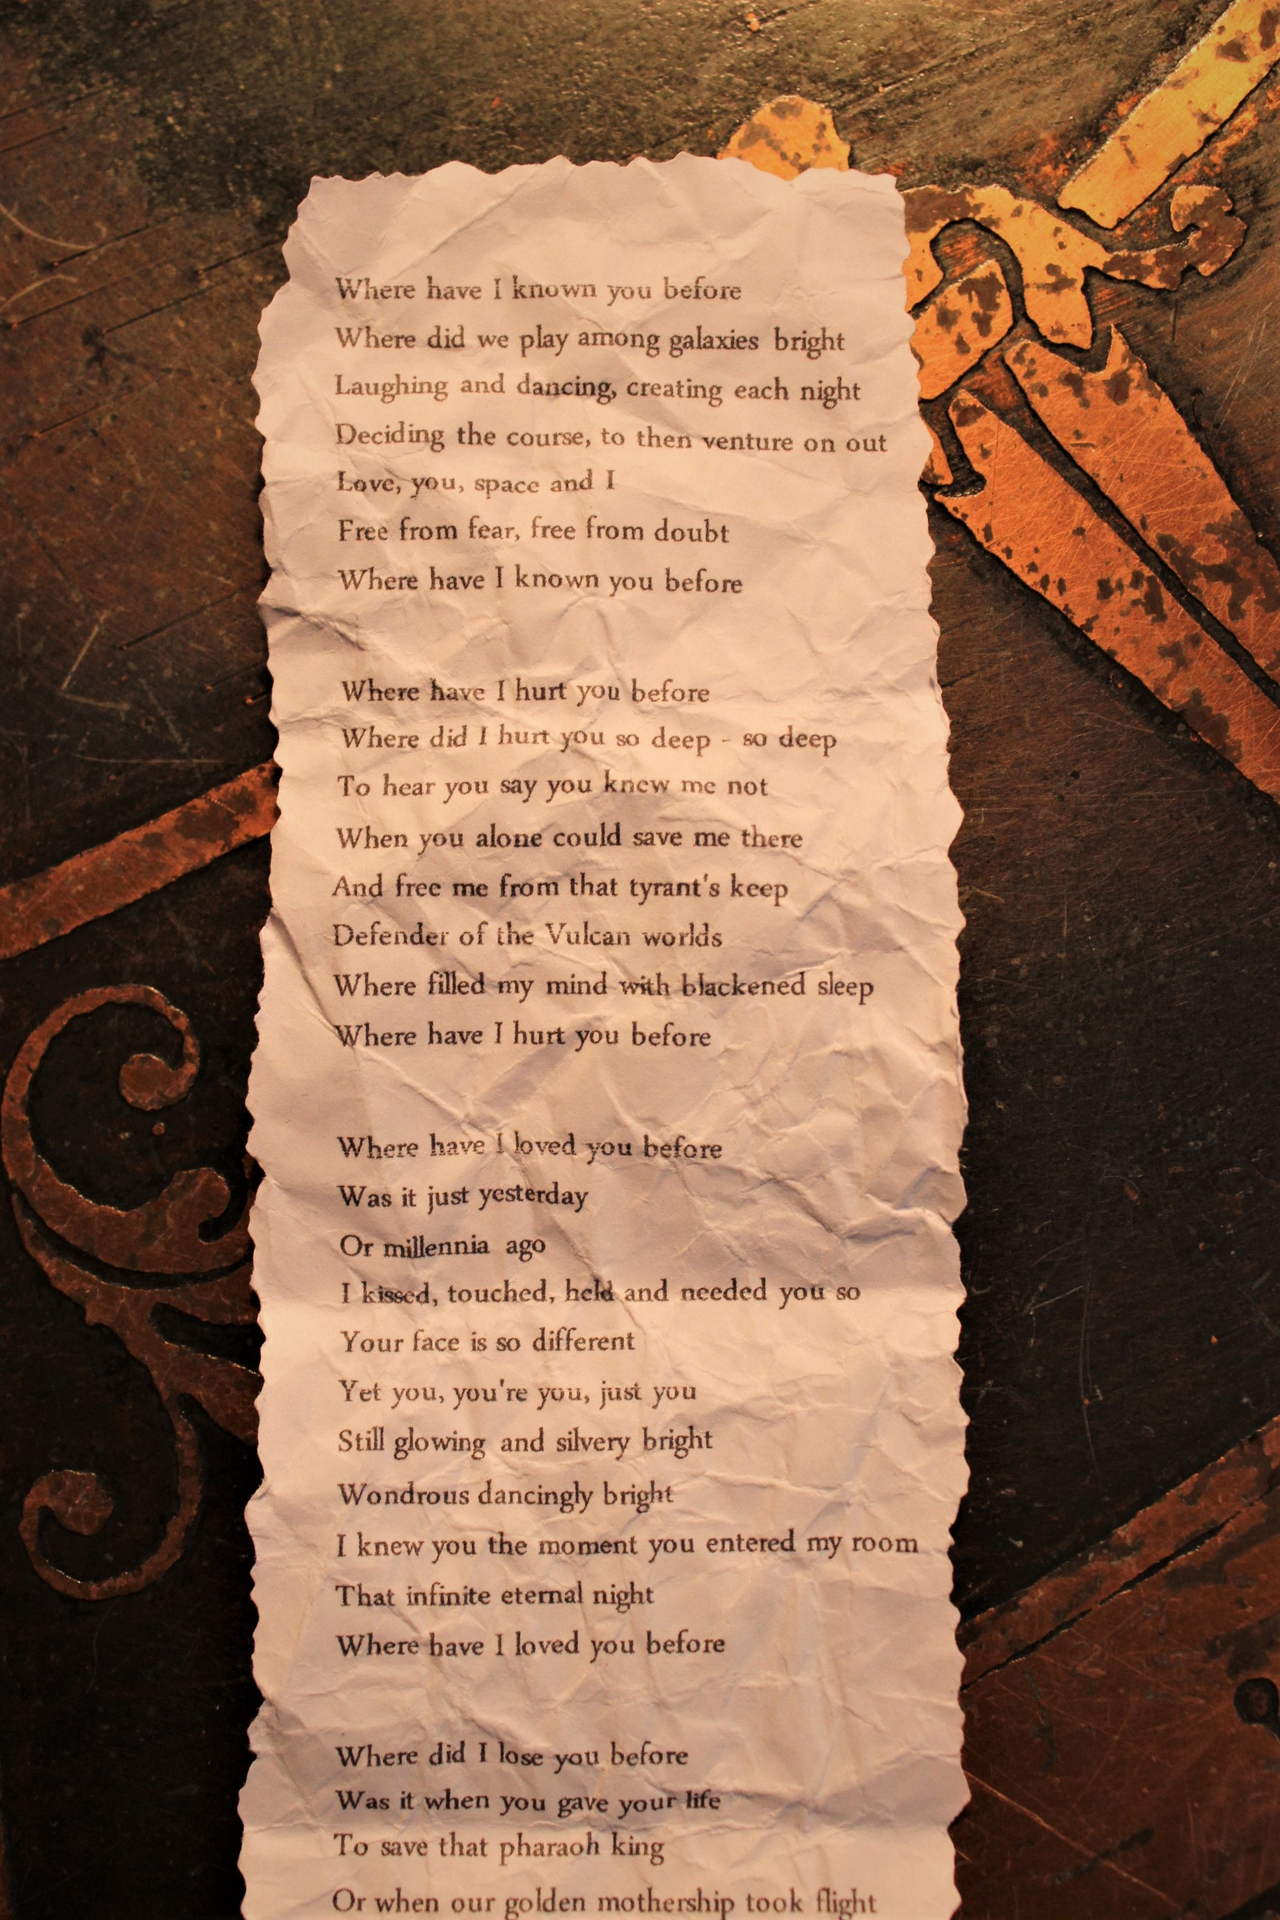 Where have I known you before
Where did we play among galaxies bright
Laughing and dancing, creating each night
Deciding the course, to then venture on out
Love, you, space and I
Free from fear, free from doubt
Where have I known you before
Where have I hurt you before
Where did I hurt you so deep - so deep
To hear you say you knew me not
When you alone could save me there
And free me from that tyrant's keep
Defender of the Vulcan worlds
Where filled my mind with blackened sleep
Where have I hurt you before
Where have I loved you before
Was it just yesterday
Or millennia ago
I kissed, touched, held and needed you so
Your face is so different
Yet you, you're you, just you
Still glowing and silvery bright
Wondrous dancingly bright
I knew you the moment you entered my room
That infinite eternal night
Where have I loved you before
Where did I lose you before
Was it when you gave your life
To save that pharaoh king
Or when our golden mothership took flight